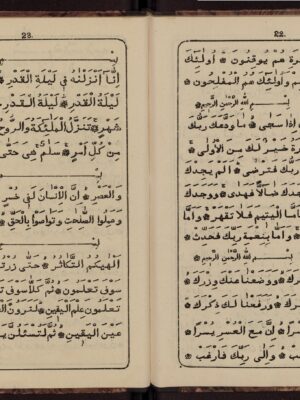 22.
هُمْ يُوقِنُونَ ۞ أُولَٰئِكَ
وَأُولَٰئِكَ هُمُ الْمُفْلِحُونَ ۞
بِسْمِ اللهِ الرَّحْمٰنِ الرَّحِيْمِ
اِذَا سَجَى ۞ مَا وَدَّعَكَ رَبُّكَ
خَيْرٌ لَكَ مِنَ الْأُولَى ۞
رَبُّكَ فَتَرْضَى ۞ اَلَمْ يَجِدْكَ
ضَالًّا فَهَدَى ۞ وَوَجَدَكَ
فَاَمَّا الْيَتِيْمَ فَلَا تَقْهَرْ ۞ وَاَمَّا
وَاَمَّا بِنِعْمَةِ رَبِّكَ فَحَدِّثْ ۞
بِسْمِ اللهِ الرَّحْمٰنِ الرَّحِيْمِ
۞ وَوَضَعْنَا عَنْكَ وِزْرَكَ ۞
۞ وَرَفَعْنَا لَكَ ذِكْرَكَ ۞
۞ اِنَّ مَعَ الْعُسْرِ يُسْرًا ۞
۞ وَاِلَى رَبِّكَ فَارْغَبْ ۞
23.
اِنَّا اَنْزَلْنٰهُ فِي لَيْلَةِ الْقَدْرِ
لَيْلَةُ الْقَدْرِ ۞ لَيْلَةُ الْقَدْرِ
شَهْرٍ ۞ تَنَزَّلُ الْمَلٰئِكَةُ وَالرُّوحُ
مِنْ كُلِّ اَمْرٍ ۞ سَلٰمٌ هِيَ حَتَّى
وَالْعَصْرِ ۞ اِنَّ الْاِنْسَانَ لَفِي خُسْرٍ
وَعَمِلُوا الصّٰلِحٰتِ وَتَوَاصَوْا بِالْحَقِّ
اَلْهٰيكُمُ التَّكَاثُرُ ۞ حَتَّى زُرْتُمُ
سَوْفَ تَعْلَمُونَ ۞ ثُمَّ كَلَّا سَوْفَ
تَعْلَمُونَ عِلْمَ الْيَقِيْنِ ۞ لَتَرَوُنَّ
عَيْنَ الْيَقِيْنِ ۞ ثُمَّ لَتُسْئَلُنَّ